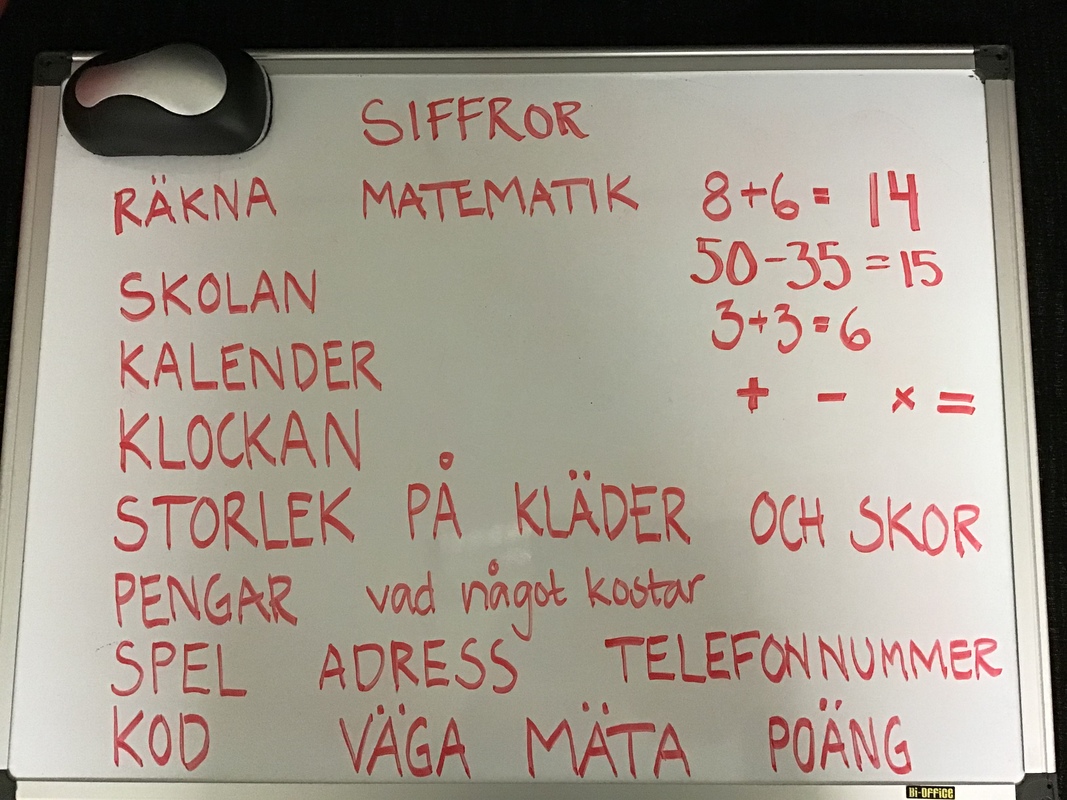 SIFFROR
RÄKNA MATEMATIK 8+6= 14
50-35=15
SKOLAN
3+3=6
KALENDER
+ - × =
KLOCKAN
STORLEK PÅ KLÄDER OCH SKOR
PENGAR vad något kostar
SPEL ADRESS TELEFONNUMMER
KOD VÄGA MÄTA POÄNG
Bi-Office